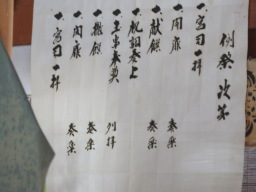 例祭次第
一、宮司一拝
一、開扉 奏楽
一、献饌 奏楽
一、祝詞奏上
一、玉串奉奠 列拝
一、撤饌 奏楽
一、閉扉 奏楽
一、宮司一拝